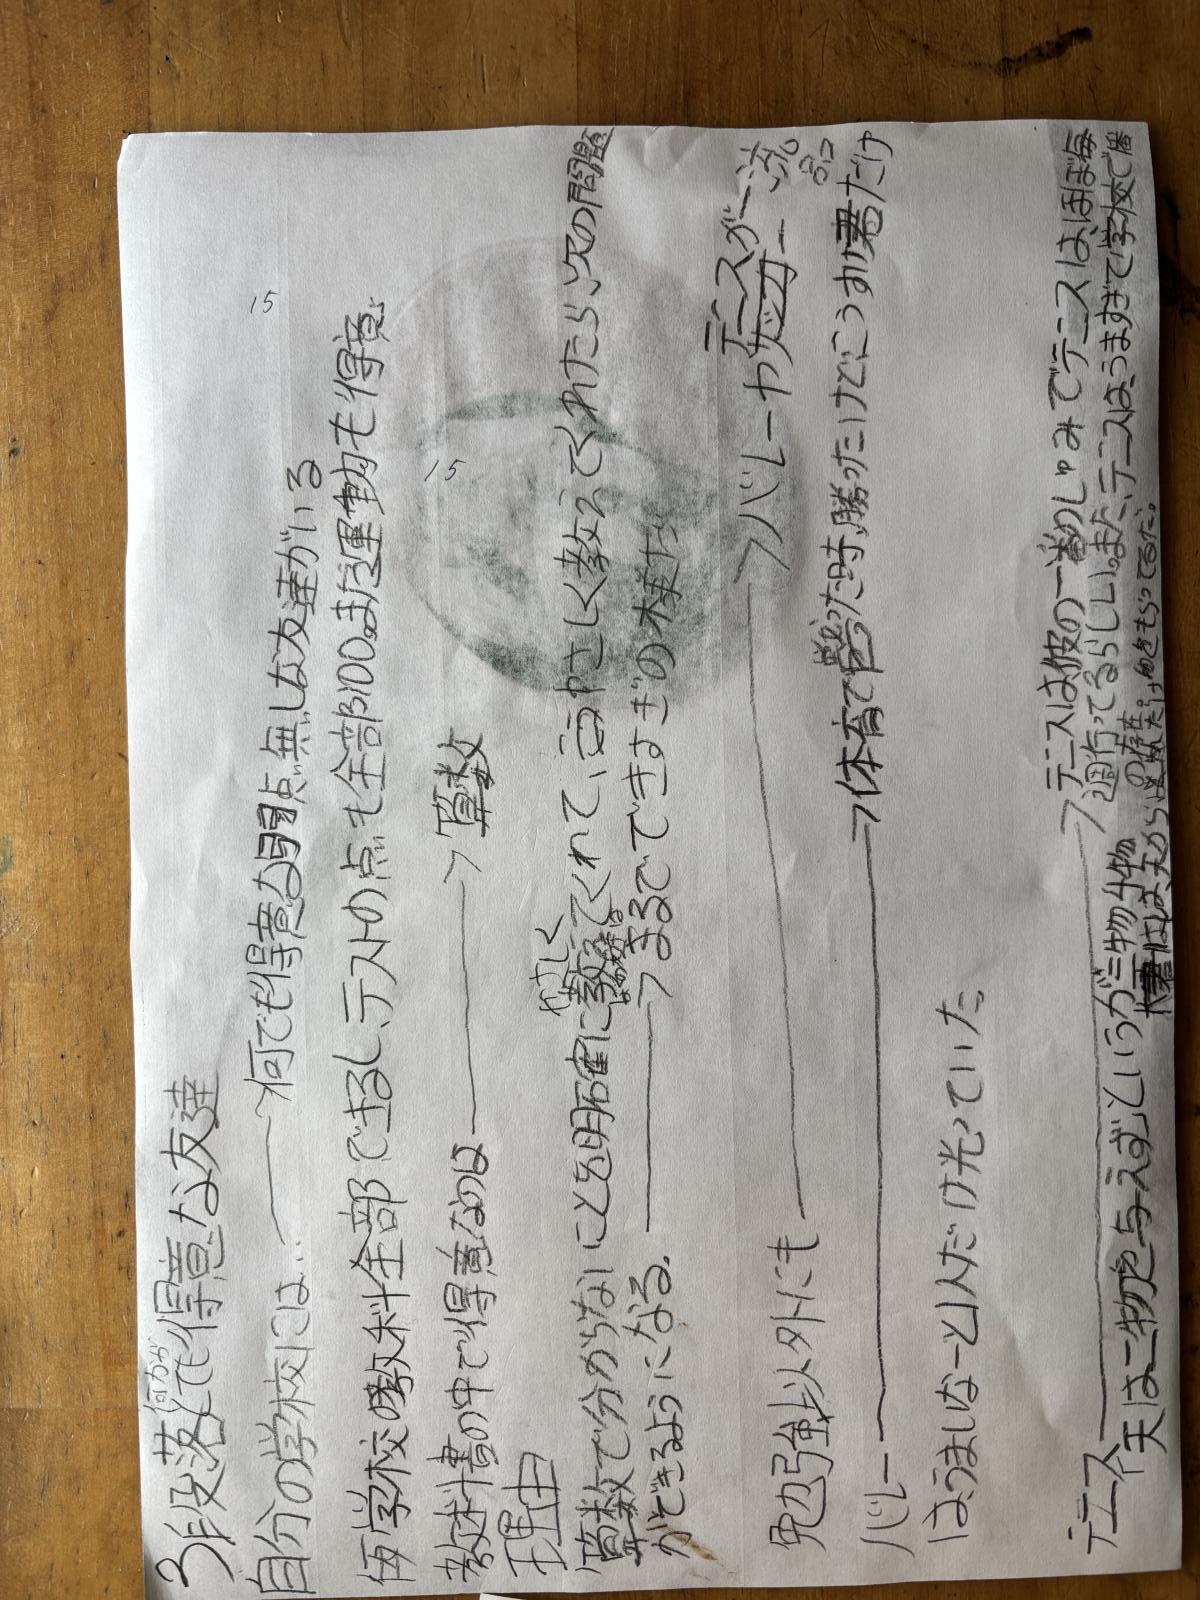 3段落 何でも得意な友達
自分の学校には… → 何でも得意な弱点無しな友達がいる
15
学校の教科全部できるし、テストの点も全部100点また運動も得意
15
教科書の中で得意なのは → 算数
理由
算数で分からないことを明確に教えてくれて、こうやさしく教えてくれたら次の問題
やさしく
ができるようになる。 → まるでできすぎの様だ
勉強以外にも → バレーやサッカー
テニスが一流
バレー → 体育で戦った時、勝ったけどこうすけ君だけ
はうましなーと1人だけ光っていた
テニス → テニスは彼の一番のしゅみでテニスは、ほぼ毎
週行ってるらしい。また、テニスは、うますぎて学校で一番
の存在。
天は二物を与えずというが三物4物
は、天から